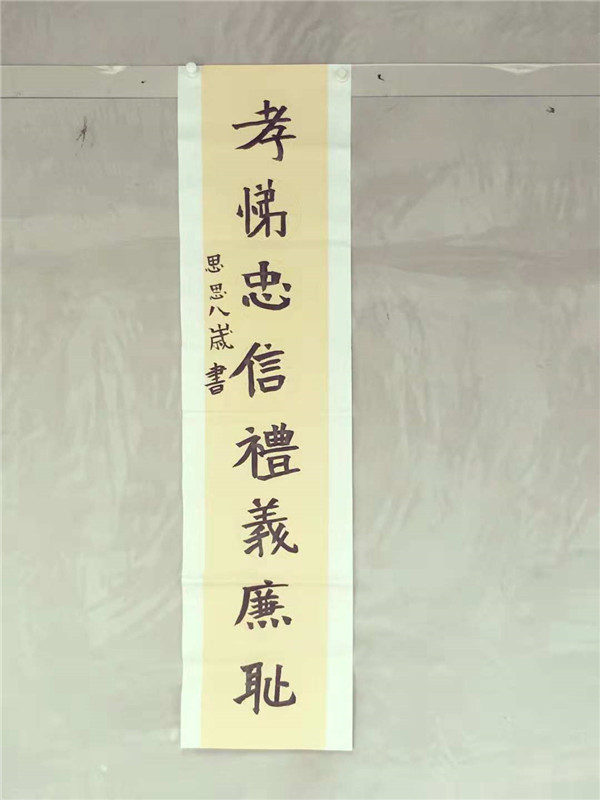 孝悌忠信禮義廉耻
思思八歲書